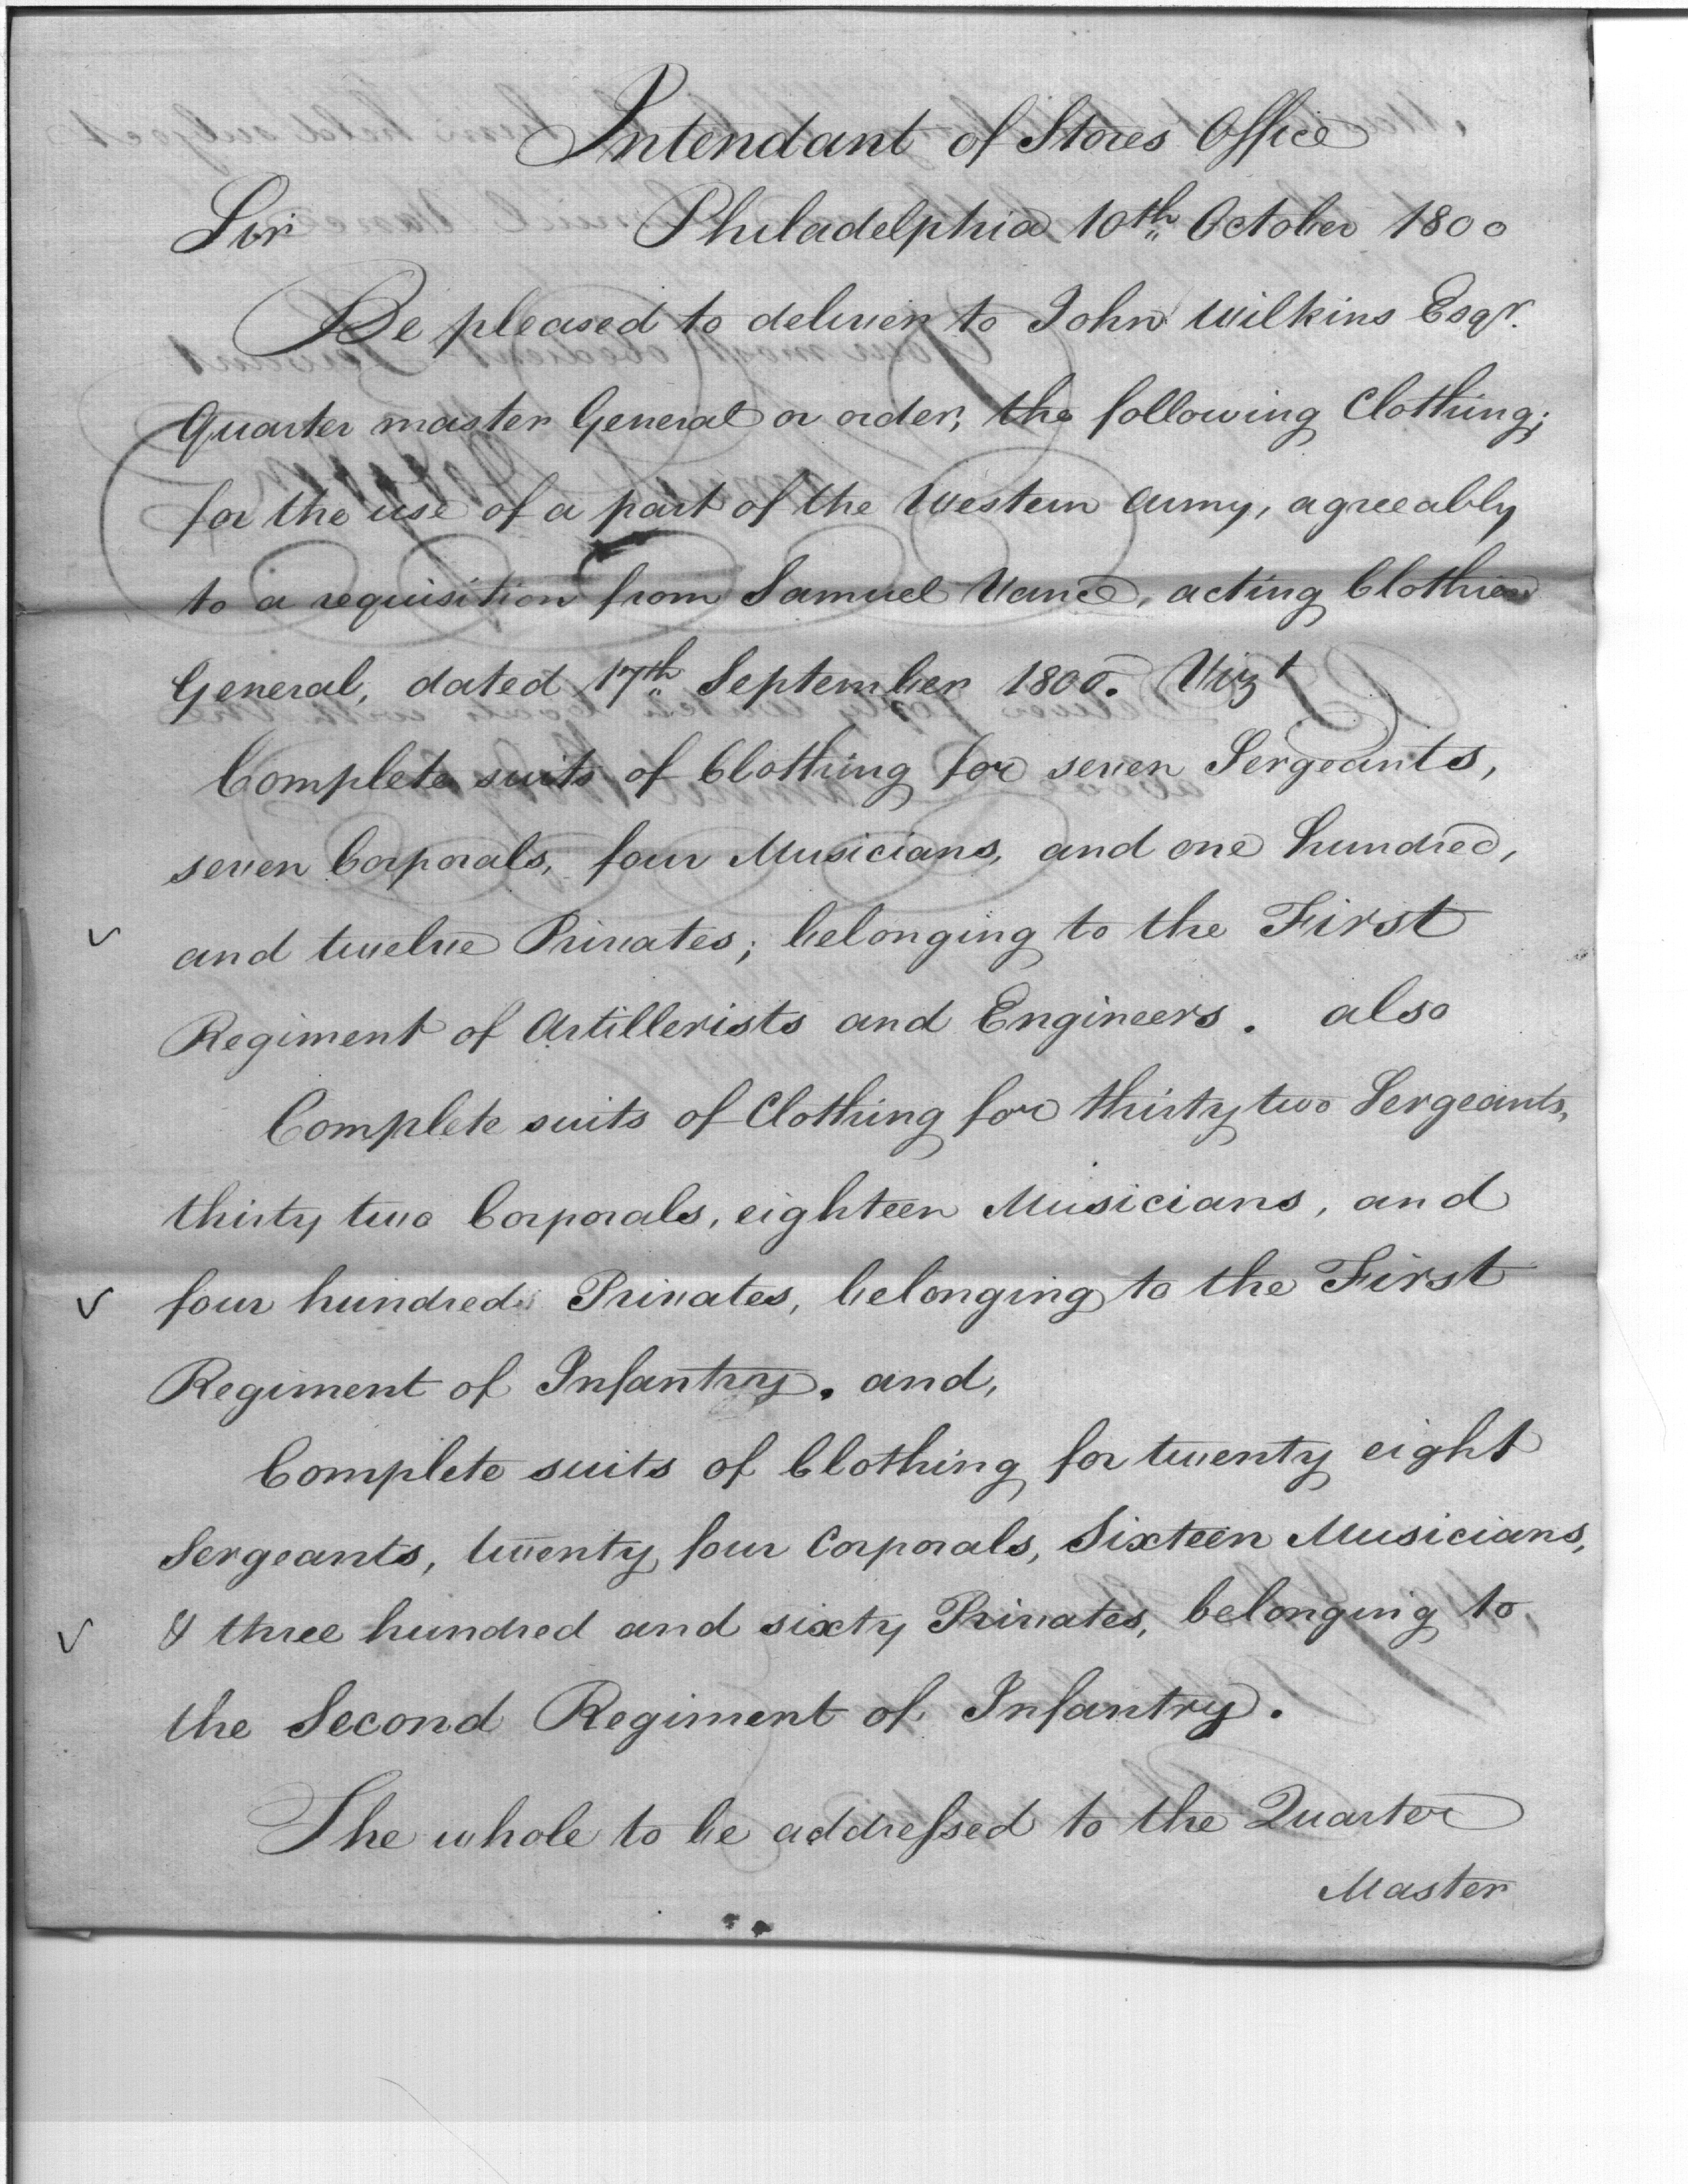 Intendant of Stores Office
Sir Philadelphia 10th October 1800
Be pleased to deliver to John Wilkins Esqr.
Quarter master General or order, the following Clothing;
for the use of a part of the Western Army, agreeably
to a requisition from Samuel Vance, acting Clothier
General, dated 17th September 1800. Vizt
Complete suits of Clothing for seven Sergeants,
seven Corporals, four Musicians, and one hundred,
and twelve Privates; belonging to the First
Regiment of Artillerists and Engineers. also
Complete suits of Clothing for thirty two Sergeants,
thirty two Corporals, eighteen Musicians, and
four hundred Privates, belonging to the First
Regiment of Infantry. and,
Complete suits of Clothing for twenty eight
Sergeants, twenty four Corporals, Sixteen Musicians,
& three hundred and sixty Privates, belonging to
the Second Regiment of Infantry.
The whole to be addressed to the Quarter
Master